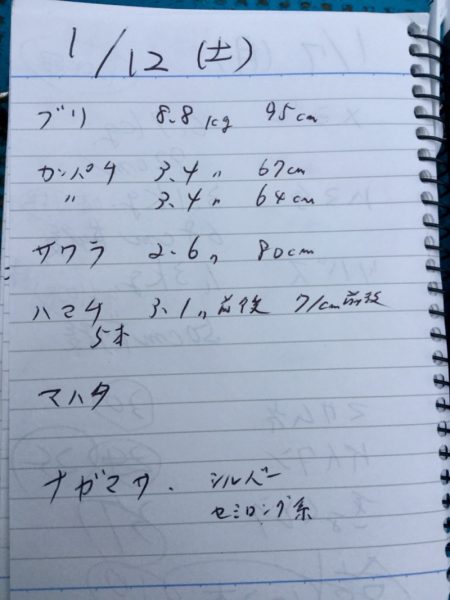 1/12 (土)
ブリ 8.8kg 95cm
カンパチ 3.4〃 67cm
〃 3.4〃 64cm
サワラ 2.6〃 80cm
ハマチ 3.1〃前後 71cm前後
5本
マハタ
ナガマサ. シルバー
セミロング系